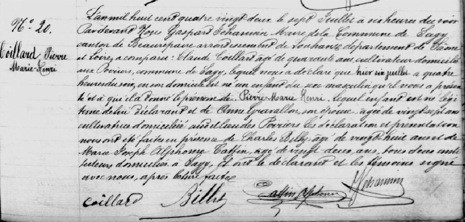 N° 20.
Coillard Pierre
Marie-Henri
L'an mil huit cent quatre vingt deux le sept Juillet à six heures du soir
Pardevant Nous Gaspard Maire de la Commune de Sagy
canton de Beaurepaire arrondissement de Louhans département de Saône
et Loire, a comparu Claude Coillard âgé de quarante ans cultivateur domicilié
commune de Sagy, lequel nous a déclaré que hier six juillet à quatre
heures du soir, en son domicile est né un enfant du sexe masculin qu'il nous a présenté
et à qui il a donné le prénom de Pierre-Marie Henri, lequel enfant est né légi
time de lui déclarant et de son épouse, âgée de vingt sept ans
cultivatrice domiciliée audit les déclaration et présentation
nous ont été faites en présence de Charles Billy âgé de vingt huit ans et de
Marie Joseph Alphonse âgé de vingt deux ans, tous deux
domiciliés à Sagy, Et ont le déclarant et les témoins signé
avec nous, après lecture faite.
Coillard